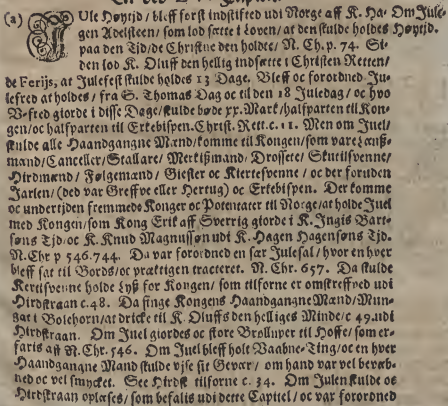 (a) JUle Høytid / bleff først indstifted udi Norge aff K. Ha- Om Jule
gen Adelsteen / som lod sætte i Loven / at den skulde holdes Høytid.
paa den Tid / de Christne den holdte / N. Ch. p. 74. Si-
den lod K. Oluff den hellig indsætte i Christen Retten /
de Ferijs, at Julefest skulde holdes 13 Dage. Bleff oc forordned Ju-
lefred at holdes / fra S. Thomas Dag oc til den 18 Juledag / oc hvo
V-fred giorde i disse Dage / skulde bøde xx. Mark / halfparten til Kon-
gen / oc halfparten til Erkebispen. Christ. Rett. c. 11. Men om Juel /
skulde alle Haandgangne Mænd / komme til Kongen / som vare Lænß-
mænd / Canceller / Stallare / Merkißmænd / Drossete / Skutilsvenne /
Hirdmænd / Følgemænd / Giester oc Kiertesvenne / oc der foruden
Jarlen / (det var Greffve eller Hertug) oc Erkebispen. Der komme
oc undertiden fremmede Konger oc Potentater til Norge / at holde Juel
med Kongen / som Kong Erik aff Sverrig giorde i K. Ingis Bart-
søns Tid. oc K. Knud Magnussøn udi K. Hagen Hagensøns Tid.
N. Chr p 546. 744. Da var forordned en sær Julesal / hvor en hver
bleff sat til Bords / oc præctigen tracteret. N. Chr. 657. Da skulde
Kertisvenne holde Lyß for Kongen / som tilforne er omskreffned udi
Hirdskraan c. 48. Da finge Kongens Haandgangne Mænd / Mun-
gat i Bolehorn / at dricke til K. Oluffs den helliges Minde / c 49. udi
Hirdskraan. Om Juel giordes oc store Brolluper til Hoffe / som er-
faris aff N. Chr. 546. Om Juel bleff holt Vaabne-Ting / oc en hver
Haandgangne Mand skulde vjse sit Gevær / om hand var vel bevæb-
ned oc vel smycket. See Hirdsk tilforne c. 34. Om Julen skulde oc
Hirdskraan oplæses / som befalis udi dette Capitel / oc var forordned